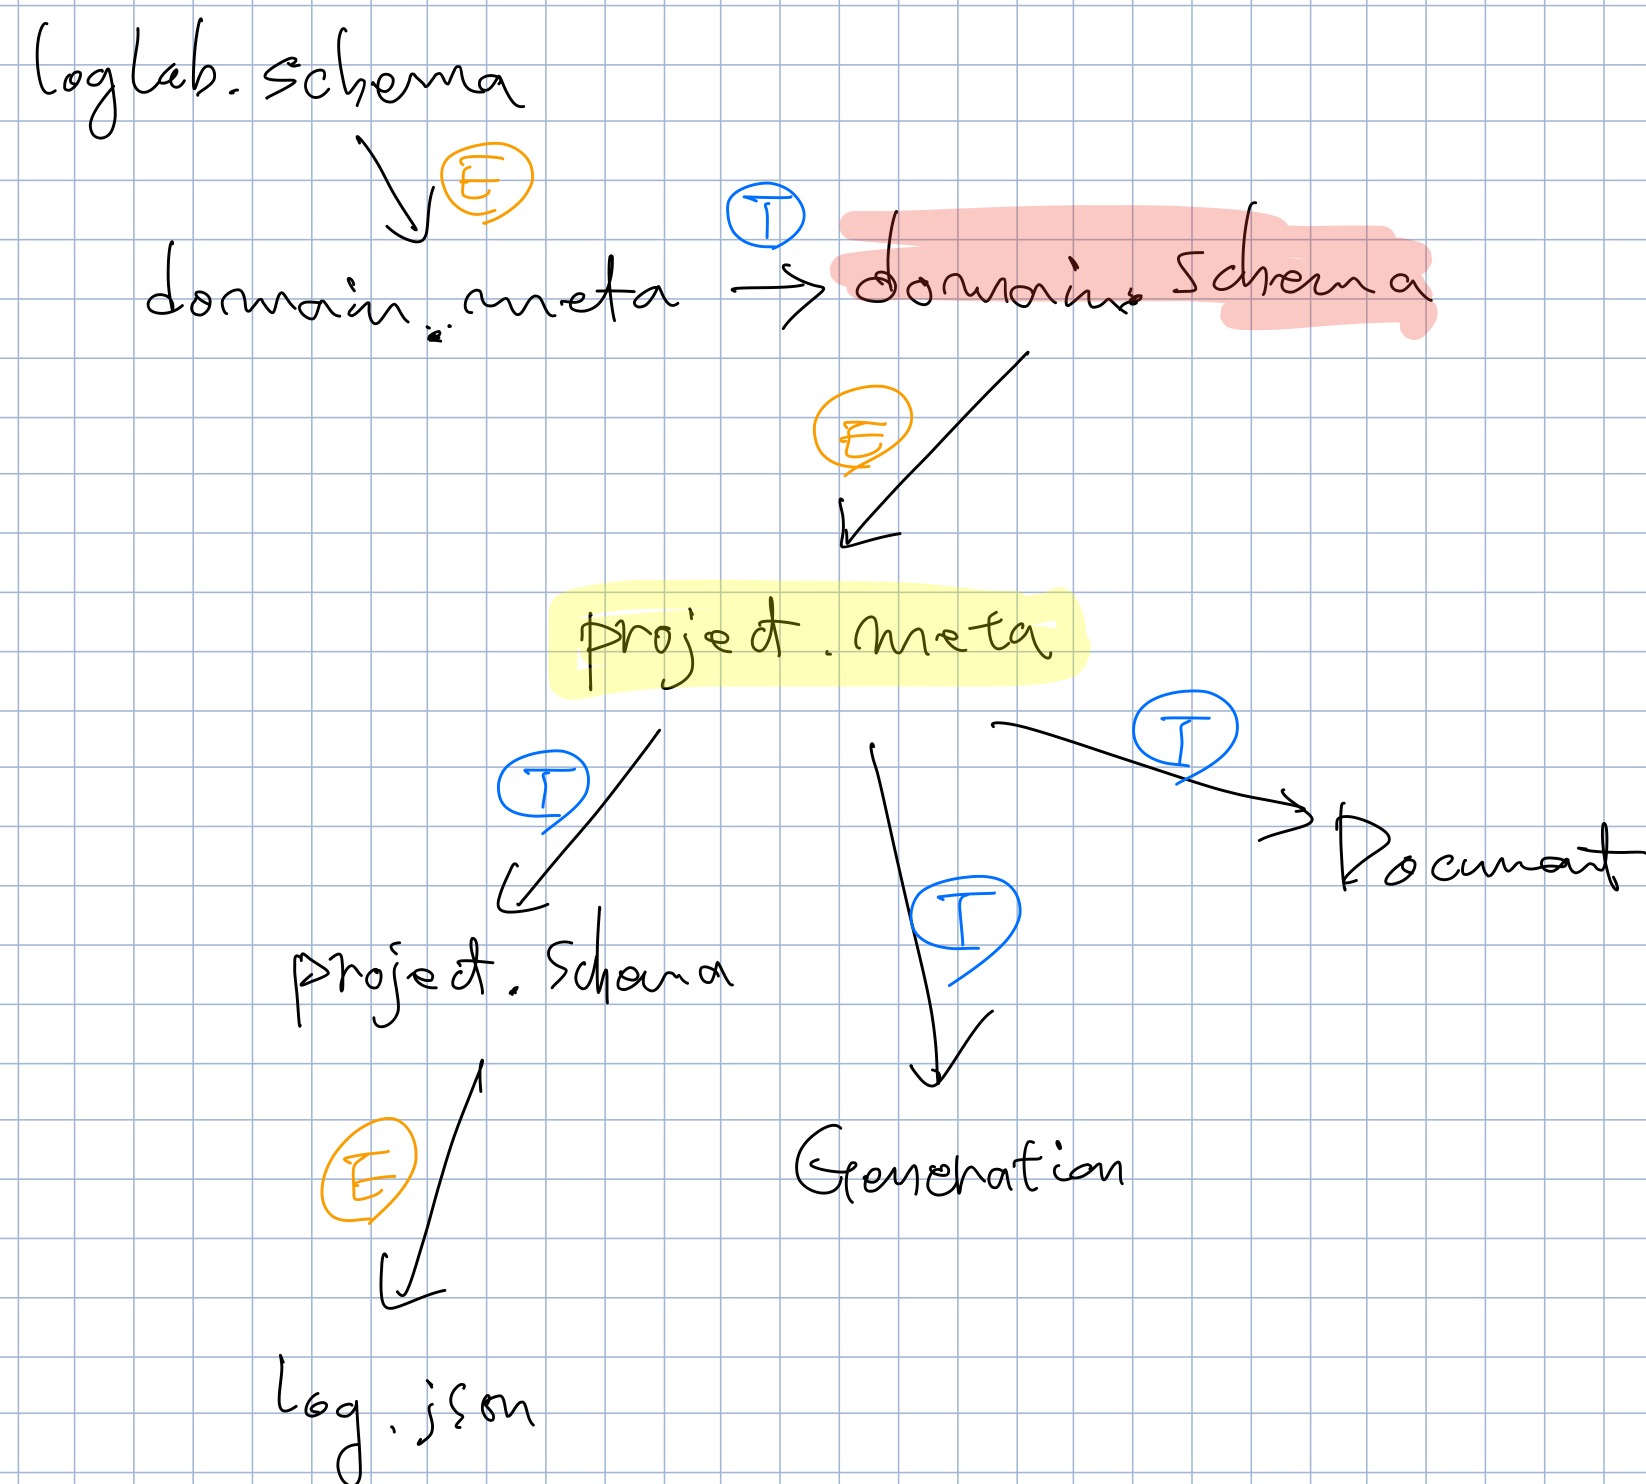 loglab.schema
E
T
domain.meta → domain.schema
E
project.meta
T
T
Document
T
project.schema
E
Generation
log.json